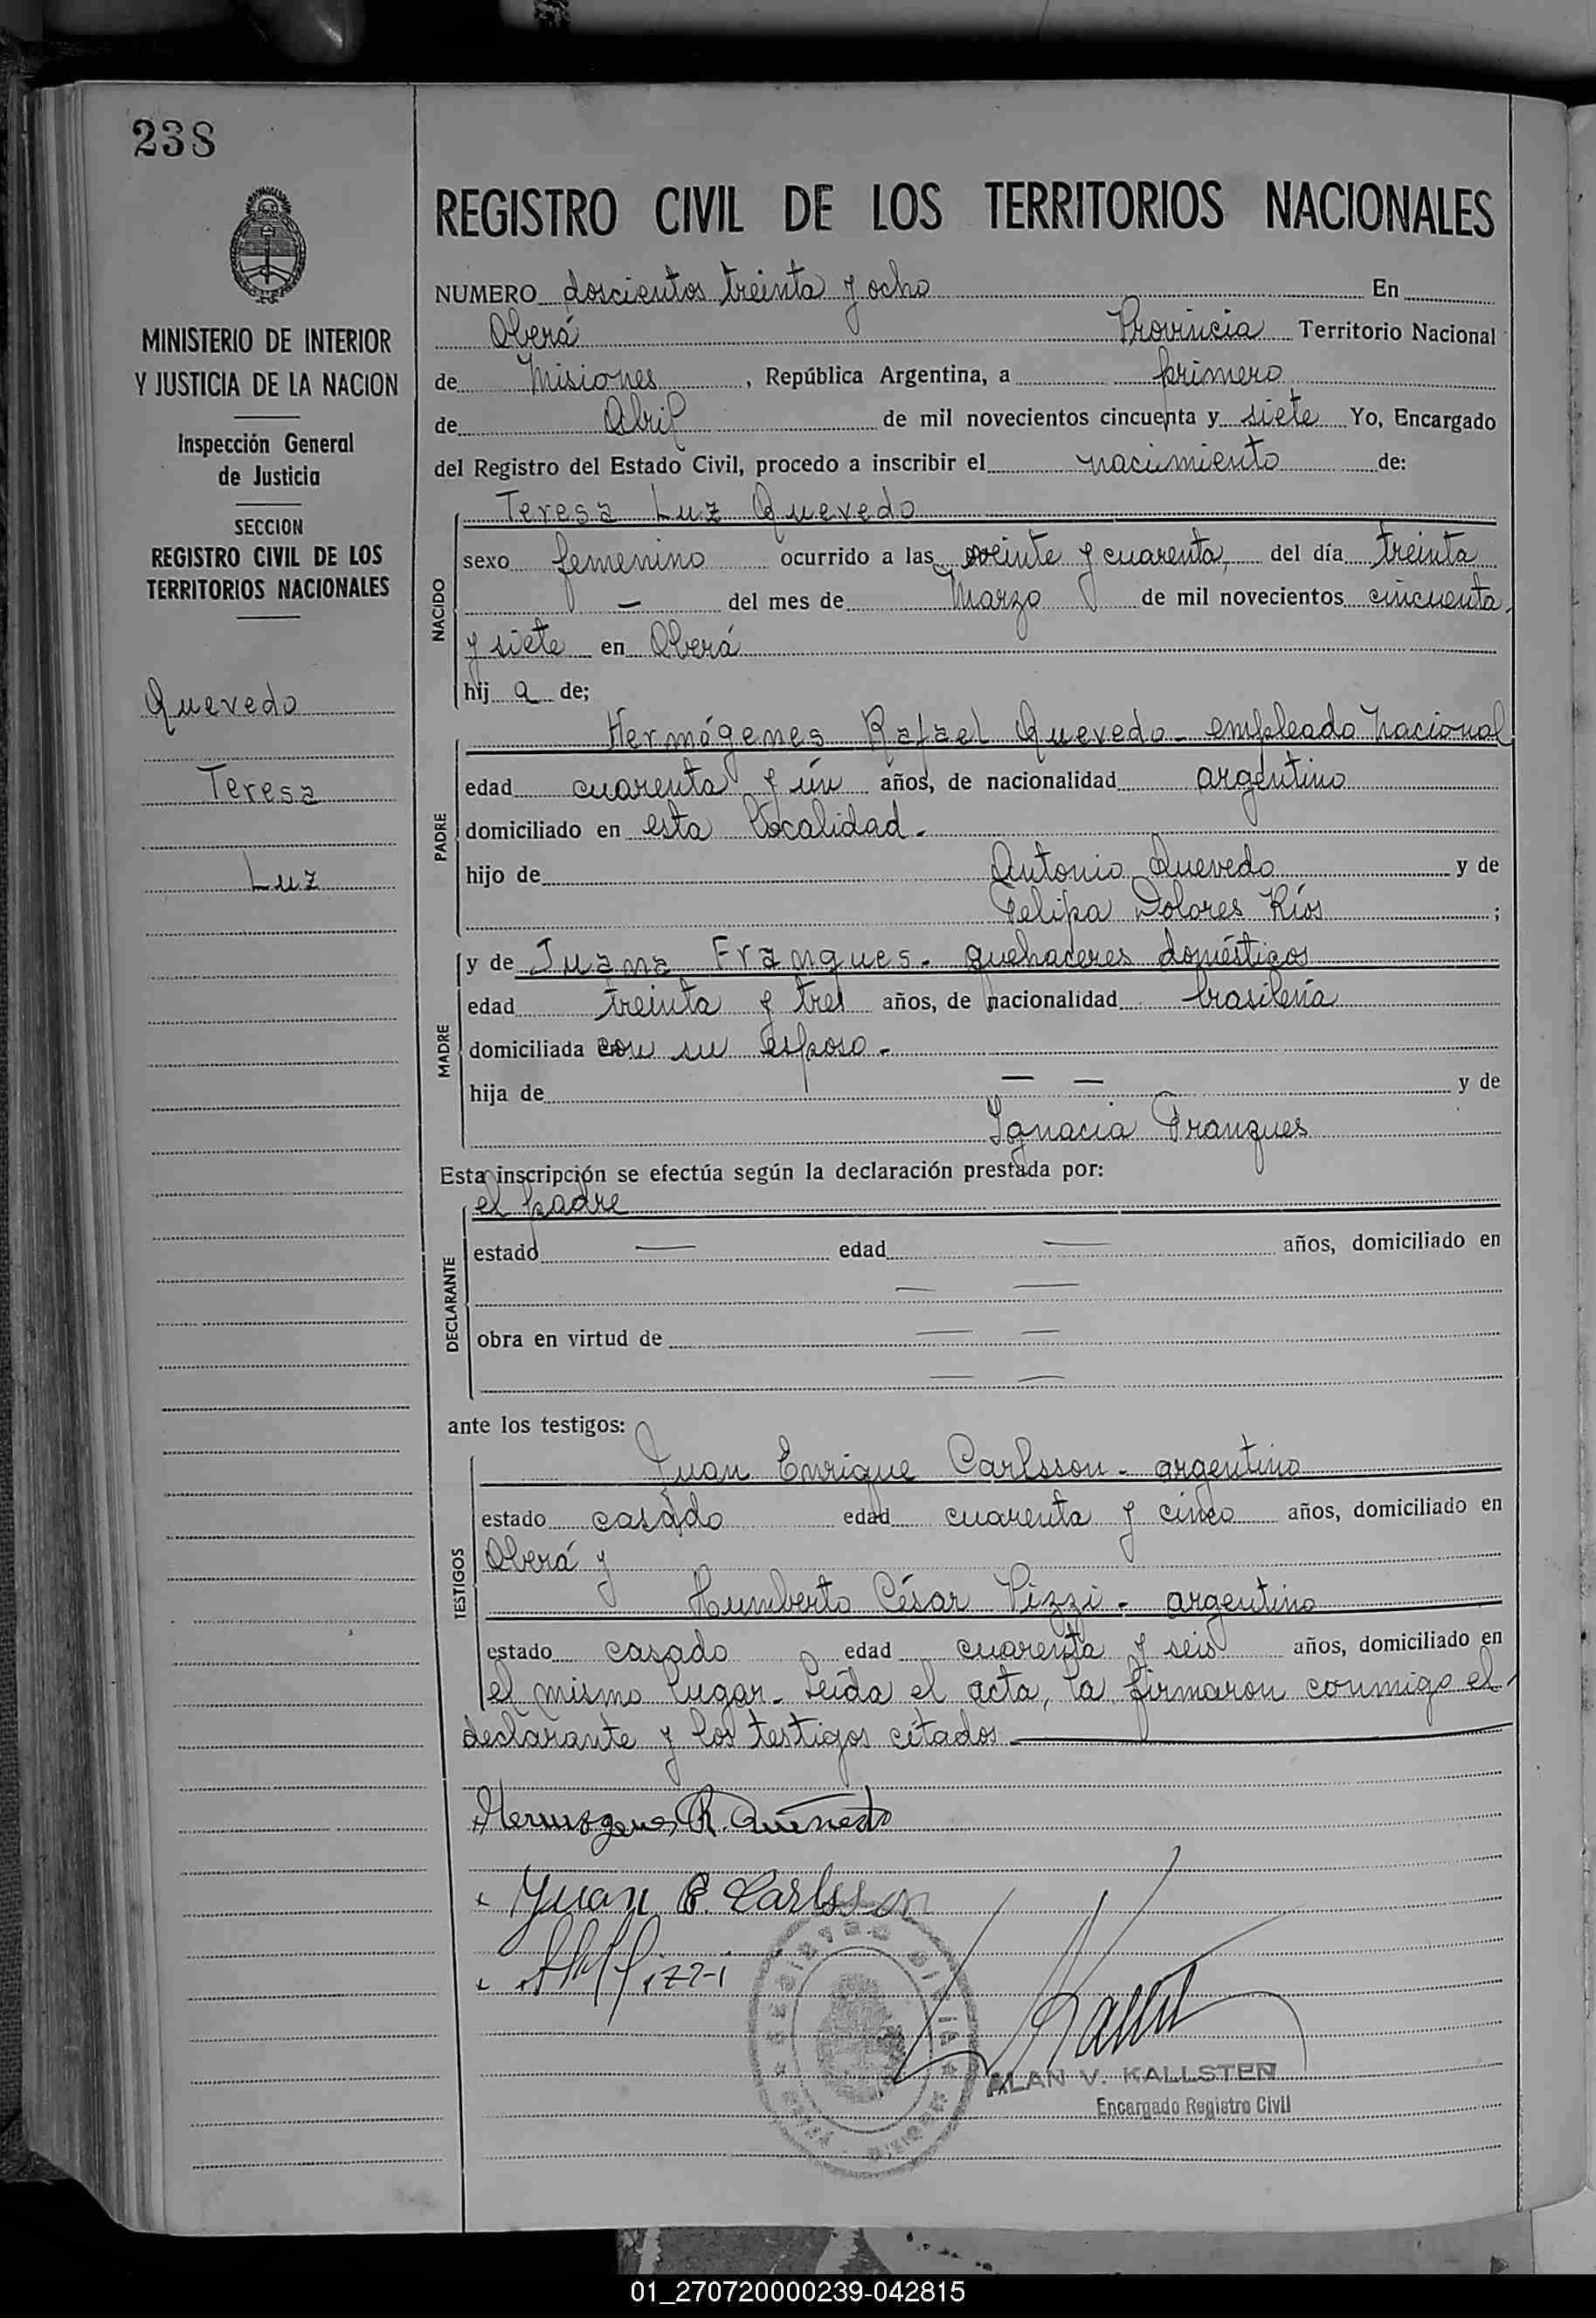 238
REGISTRO CIVIL DE LOS TERRITORIOS NACIONALES
MINISTERIO DE INTERIOR
Y JUSTICIA DE LA NACION
Inspección General
de Justicia
SECCION
REGISTRO CIVIL DE LOS
TERRITORIOS NACIONALES
Quevedo
Teresa
Luz
NUMERO doscientos treinta y ocho En
Oberá Provincia Territorio Nacional
de Misiones, República Argentina, a primero
de Abril de mil novecientos cincuenta y siete Yo, Encargado
del Registro del Estado Civil, procedo a inscribir el nacimiento de:
NACIDO
Teresa Luz Quevedo
sexo femenino ocurrido a las veinte y cuarenta, del día treinta
— del mes de Marzo de mil novecientos cincuenta
y siete en Oberá
hij a de;
PADRE
Hermógenes Rafael Quevedo - empleado nacional
edad cuarenta y un años, de nacionalidad argentino
domiciliado en esta localidad.
hijo de Antonio Quevedo y de
Felipa Dolores Ríos ;
MADRE
y de Juana Franques. quehaceres domésticos
edad treinta y tres años, de nacionalidad brasileña
domiciliada con su esposo.
hija de — — y de
Ignacia Franques
Esta inscripción se efectúa según la declaración prestada por:
DECLARANTE
el padre
estado — edad — años, domiciliado en
— —
obra en virtud de — —
— —
ante los testigos:
TESTIGOS
Juan Enrique Carlsson - argentino
estado casado edad cuarenta y cinco años, domiciliado en
Oberá y
Humberto César Pizzi - argentino
estado casado edad cuarenta y seis años, domiciliado en
el mismo lugar. Leída el acta, la firmaron conmigo el
declarante y los testigos citados
Hermogenes R. Quevedo
Juan E. Carlsson
Pizzi
REGISTRO CIVIL
Kallsten
ALAN V. KALLSTEN
Encargado Registro Civil
01_270720000239-042815